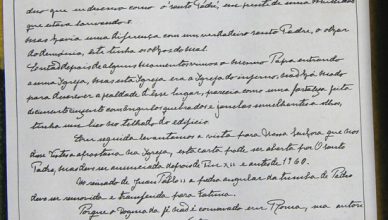 diu que in descrevo como o "santo Padre", em frente de uma multidão
que estava louvando-o.
Mas havia uma diferença com um verdadeiro santo Padre, o olhar
do demónio, este tinha o olhar do mal.
Então depois de alguns momentos vimos o mesmo Papa entrando
a uma Igreja, mas esta Igreja era a Igreja do inferno, não há modo
para descrever a fealdade d'esse lugar, parecia como uma fortaleza feita
de cimento cinzento com ângulos quebrados e janelas semelhantes a olhos,
tinha um bico no telhado do edifício.
Em seguida levantamos a vista para Nossa Senhora que nos
disse Vistes a apostasia na Igreja, esta carta pode ser aberta por O santo
Padre, mas deve ser anunciada depois de Pio XII e antes de 1960.
No reinado de Juan Pablo II a pedra angular da tumba de Pedro
deve ser removida e transferida para Fatima.
Porque o dogma da fé não é conservado em Roma, sua autori